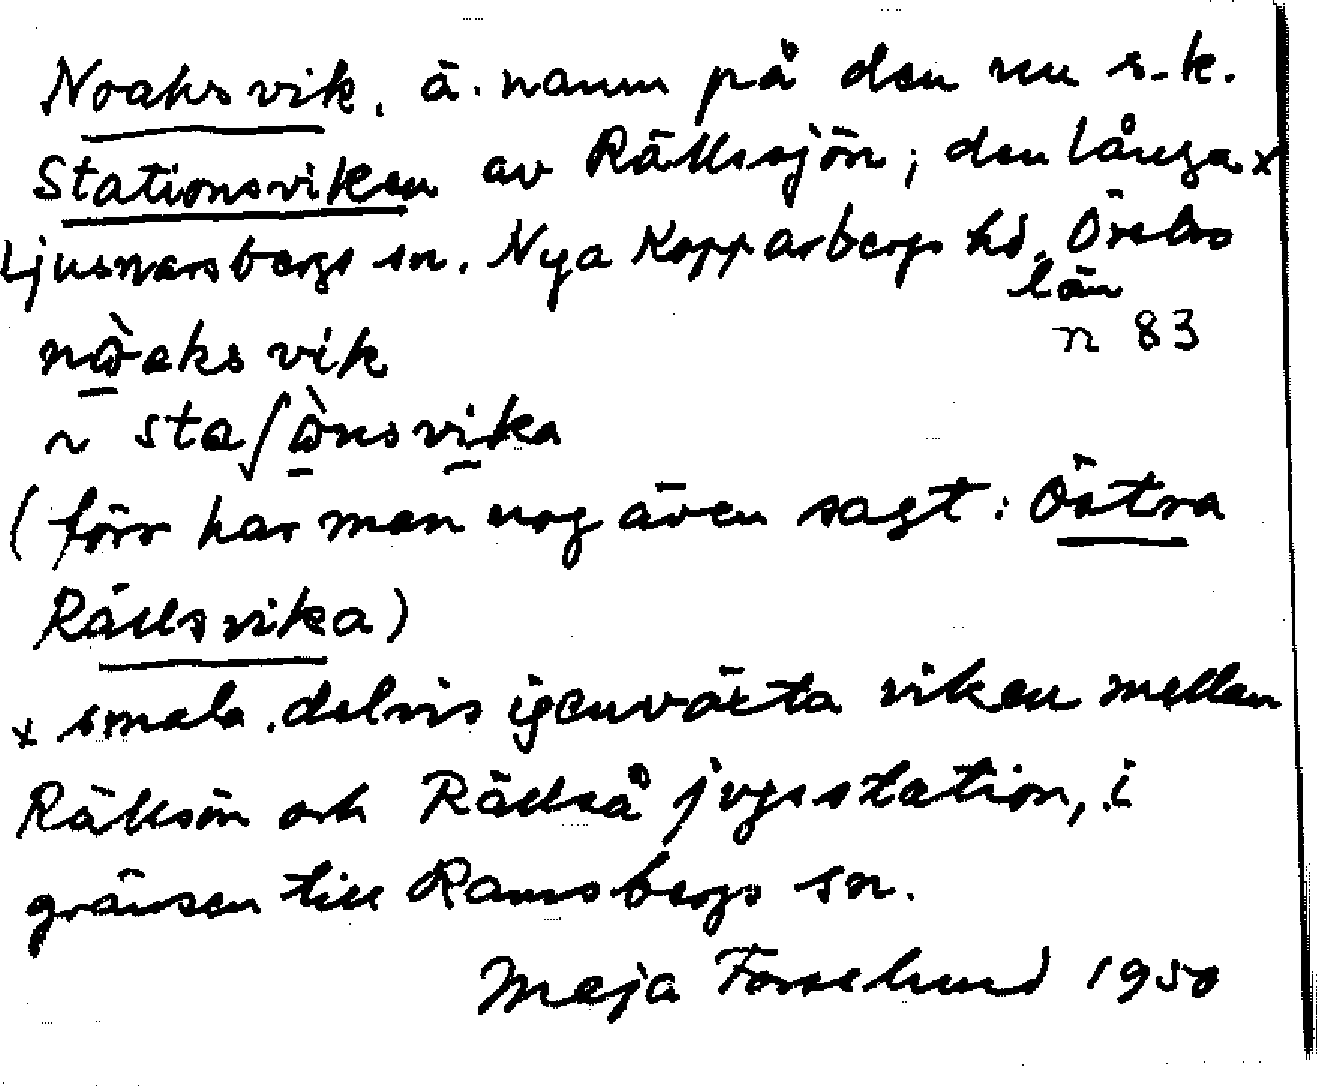 Noaksvik, ä. namn på den nu s.k.
Stationsviken av Rällssjön; den långa x
Ljusnarsbergs sn. Nya Kopparbergs hd, Örebro
län
n 83
nɷ̀aks vik
~ staʃɷ̀nsvika
(förr har man nog även sagt: Östra
Rällsvika)
x smala, delvis igenväxta viken mellan
Rällsön och Rällså jvgsstation, i
gränsen till Ramsbergs sn.
Maja Forsslund 1950